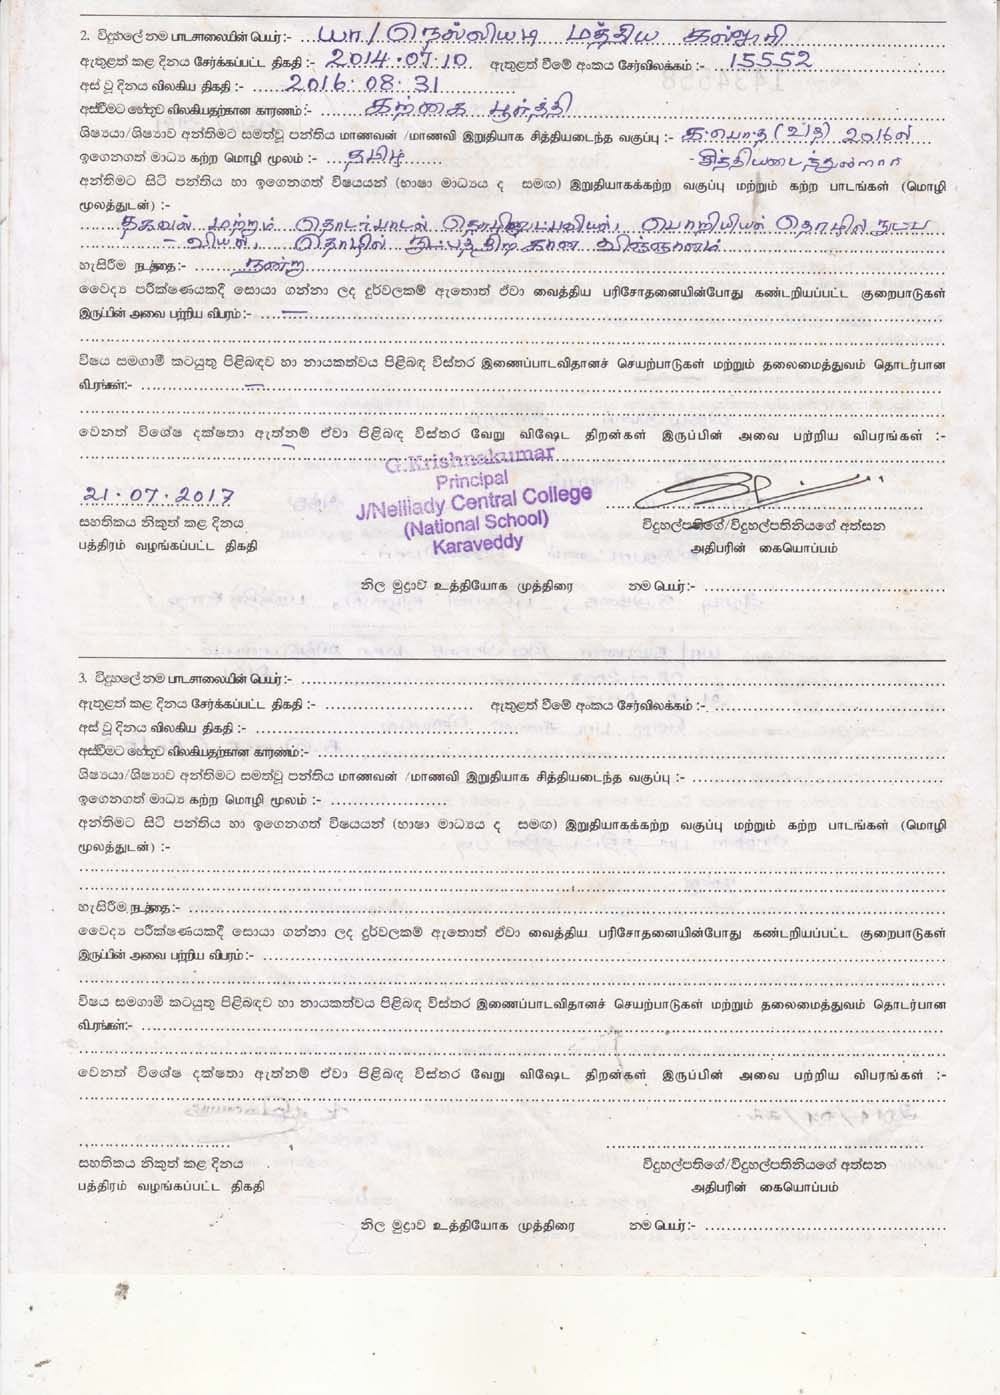 2. විදුහලේ නම பாடசாலையின் பெயர் :- யா / நெல்லியடி மத்திய கல்லூரி
ඇතුළත් කළ දිනය சேர்க்கப்பட்ட திகதி :- 2014.07.10 ඇතුළත් වීමේ අංකය சேர்விலக்கம் :- 15552
අස් වූ දිනය விலகிய திகதி :- 2016.08.31
අස්වීමට හේතුව விலகியதற்கான காரணம் :- கற்கை பூர்த்தி
ශිෂ්‍යයා/ශිෂ්‍යාව අන්තිමට සමත්වූ පන්තිය மாணவன் /மாணவி இறுதியாக சித்தியடைந்த வகுப்பு :- க.பொ.த (உ/த) 2016ல்
ඉගෙනගත් මාධ්‍ය கற்ற மொழி மூலம் :- தமிழ் - சித்தியடைந்துள்ளார்
අන්තිමට සිටි පන්තිය හා ඉගෙනගත් විෂයයන් (භාෂා මාධ්‍යය ද සමඟ) இறுதியாகக்கற்ற வகுப்பு மற்றும் கற்ற பாடங்கள் (மொழி
மூலத்துடன்) :-
தகவல் மற்றும் தொடர்பாடல் தொழினுட்பவியல், பொறியியல் தொழில் நுட்ப
- வியல், தொழில் நுட்பத்திற்கான விஞ்ஞானம்
හැසිරීම நடத்தை :- நன்று
වෛද්‍ය පරීක්ෂණයකදී සොයා ගන්නා ලද දුර්වලකම් ඇතොත් ඒවා வைத்திய பரிசோதனையின்போது கண்டறியப்பட்ட குறைபாடுகள்
இருப்பின் அவை பற்றிய விபரம் :- —
විෂය සමගාමී කටයුතු පිළිබඳව හා නායකත්වය පිළිබඳ විස්තර இணைப்பாடவிதானச் செயற்பாடுகள் மற்றும் தலைமைத்துவம் தொடர்பான
விபரங்கள்:- —
වෙනත් විශේෂ දක්ෂතා ඇත්නම් ඒවා පිළිබඳ විස්තර வேறு விஷேட திறன்கள் இருப்பின் அவை பற்றிய விபரங்கள் :-
G.Krishnakumar
Principal
J/Nelliady Central College
(National School)
Karaveddy
21.07.2017
සහතිකය නිකුත් කළ දිනය විදුහල්පතිගේ/විදුහල්පතිනියගේ අත්සන
பத்திரம் வழங்கப்பட்ட திகதி அதிபரின் கையொப்பம்
නිල මුද්‍රාව உத்தியோக முத்திரை නම பெயர் :-
3. විදුහලේ නම பாடசாலையின் பெயர் :-
ඇතුළත් කළ දිනය சேர்க்கப்பட்ட திகதி :- ඇතුළත් වීමේ අංකය சேர்விலக்கம் :-
අස් වූ දිනය விலகிய திகதி :-
අස්වීමට හේතුව விலகியதற்கான காரணம் :-
ශිෂ්‍යයා/ශිෂ්‍යාව අන්තිමට සමත්වූ පන්තිය மாணவன் /மாணவி இறுதியாக சித்தியடைந்த வகுப்பு :-
ඉගෙනගත් මාධ්‍ය கற்ற மொழி மூலம் :-
අන්තිමට සිටි පන්තිය හා ඉගෙනගත් විෂයයන් (භාෂා මාධ්‍යය ද සමඟ) இறுதியாகக்கற்ற வகுப்பு மற்றும் கற்ற பாடங்கள் (மொழி
மூலத்துடன்) :-
හැසිරීම நடத்தை :-
වෛද්‍ය පරීක්ෂණයකදී සොයා ගන්නා ලද දුර්වලකම් ඇතොත් ඒවා வைத்திய பரிசோதனையின்போது கண்டறியப்பட்ட குறைபாடுகள்
இருப்பின் அவை பற்றிய விபரம் :-
විෂය සමගාමී කටයුතු පිළිබඳව හා නායකත්වය පිළිබඳ විස්තර இணைப்பாடவிதானச் செயற்பாடுகள் மற்றும் தலைமைத்துவம் தொடர்பான
விபரங்கள்:-
වෙනත් විශේෂ දක්ෂතා ඇත්නම් ඒවා පිළිබඳ විස්තර வேறு விஷேட திறன்கள் இருப்பின் அவை பற்றிய விபரங்கள் :-
සහතිකය නිකුත් කළ දිනය විදුහල්පතිගේ/විදුහල්පතිනියගේ අත්සන
பத்திரம் வழங்கப்பட்ட திகதி அதிபரின் கையொப்பம்
නිල මුද්‍රාව உத்தியோக முத்திரை නම பெயர் :-